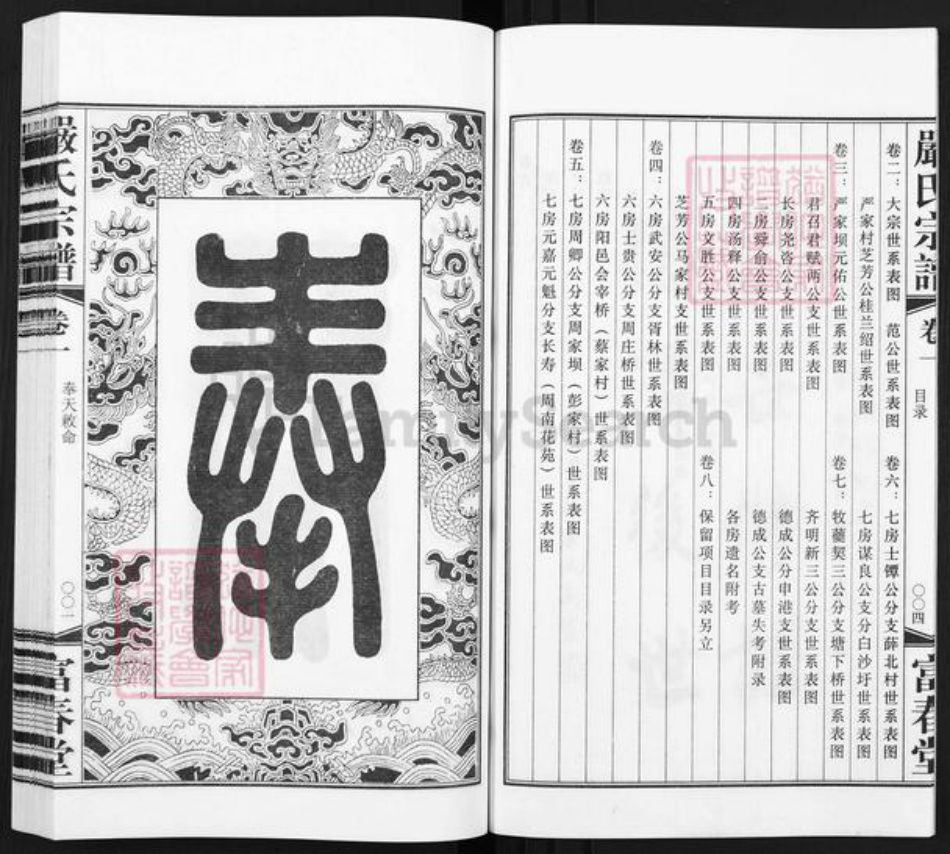 嚴氏宗譜
卷一
目录
〇〇四
富春堂
卷二：大宗世系表图 范公世系表图
严家村芝芳公桂兰绍世系表图
卷三：严家坝元佑公世系表图
君召君赋两公支世系表图
长房尧咨公支世系表图
二房舜俞公支世系表图
四房汤释公支世系表图
五房文胜公支世系表图
芝芳公马家村支世系表图
卷四：六房武安公分支胥林世系表图
六房士贵公分支周庄桥世系表图
六房阳邑会宰桥（蔡家村）世系表图
卷五：七房周卿公分支周家坝（彭家村）世系表图
七房元嘉元魁分支长寿（周南花苑）世系表图
卷六：七房士镡公分支薛北村世系表图
七房谋良公支分白沙圩世系表图
卷七：牧薹契三公分支塘下桥世系表图
齐明新三公分支世系表图
德成公分申港支世系表图
德成公支古墓失考附录
各房遗名附考
卷八：保留项目目录另立
嚴氏宗譜
卷一
奉天敕命
〇〇一
富春堂
奉
FamilySearch